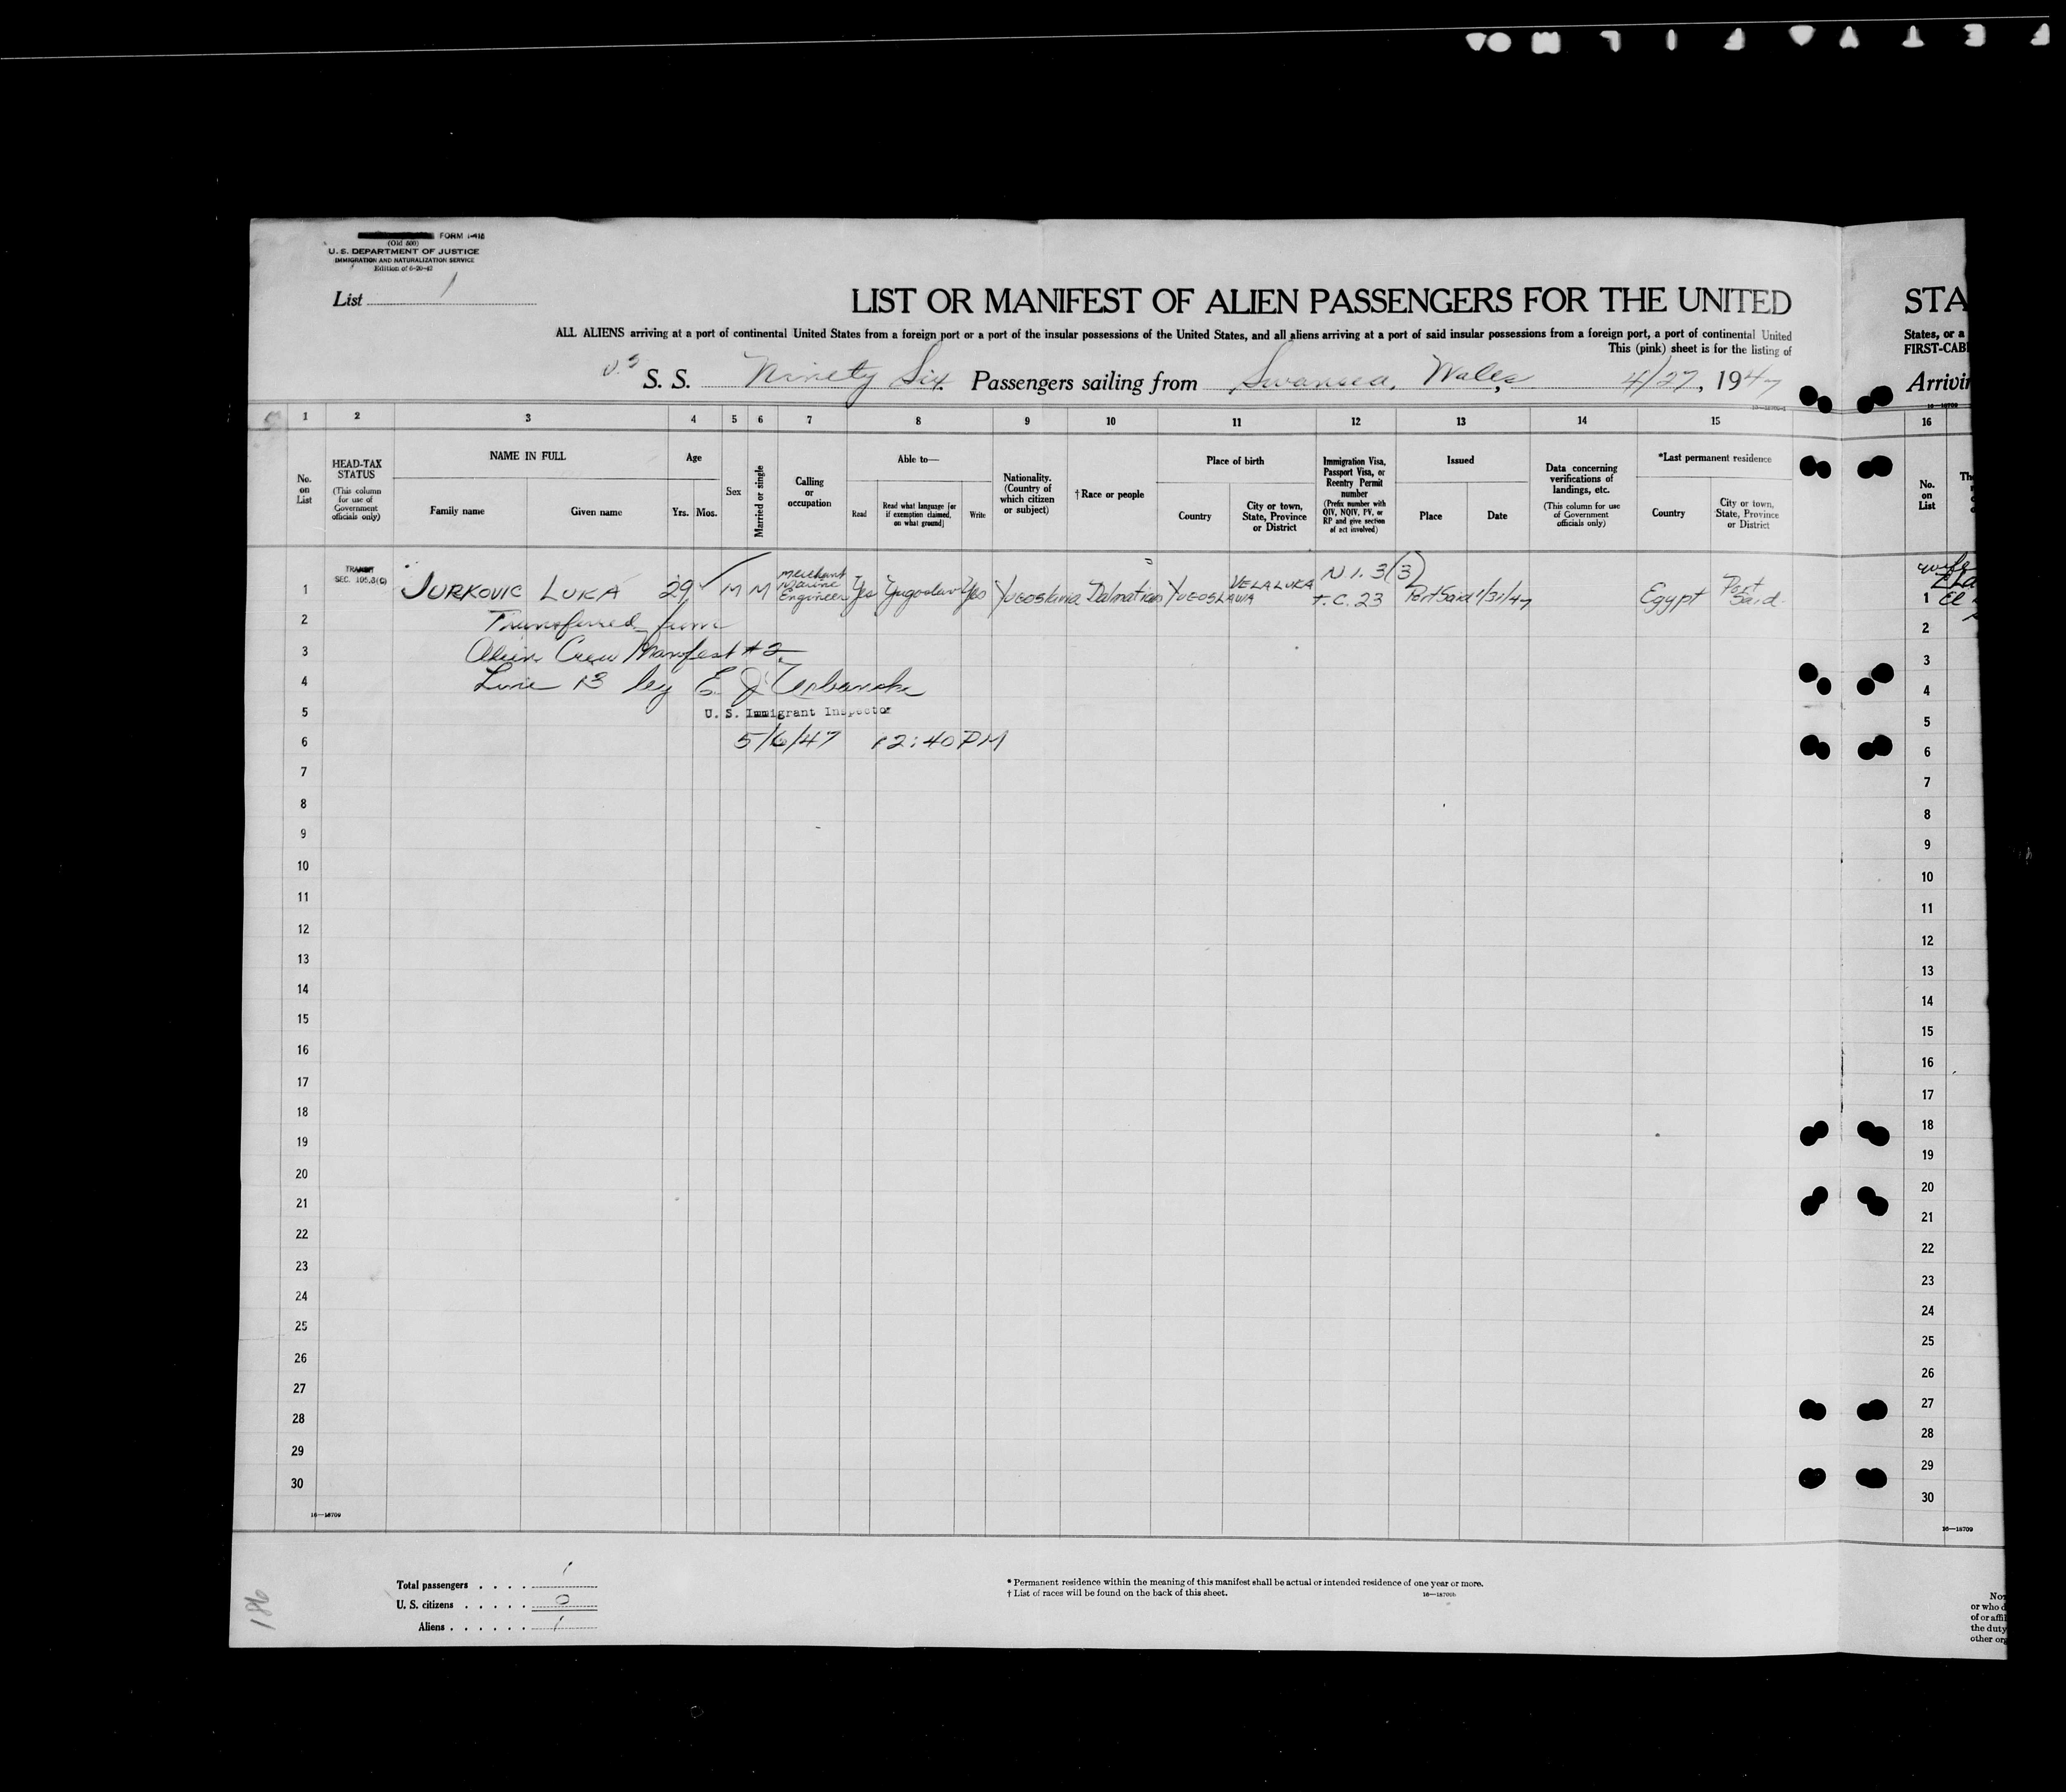 FORM I-415
(Old 500)
U. S. DEPARTMENT OF JUSTICE
IMMIGRATION AND NATURALIZATION SERVICE
Edition of 6-20-42
List 1
LIST OR MANIFEST OF ALIEN PASSENGERS FOR THE UNITED STA
ALL ALIENS arriving at a port of continental United States from a foreign port or a port of the insular possessions of the United States, and all aliens arriving at a port of said insular possessions from a foreign port, a port of continental United States, or a
This (pink) sheet is for the listing of FIRST-CAB
U.S. S. S. Ninety Six Passengers sailing from Swansea, Wales, 4/27, 1947 Arrivin
1 2 3 4 5 6 7 8 9 10 11 12 13 14 15 16
No. on List
HEAD-TAX STATUS
(This column for use of Government officials only)
NAME IN FULL
Family name Given name
Age
Yrs. Mos.
Sex
Married or single
Calling or occupation
Able to—
Read
Read what language [or if exemption claimed, on what ground]
Write
Nationality. (Country of which citizen or subject)
†Race or people
Place of birth
Country
City or town, State, Province or District
Immigration Visa, Passport Visa, or Reentry Permit number
(Prefix number with QIV, NQIV, PV, or RP and give section of act involved)
Issued
Place Date
Data concerning verifications of landings, etc.
(This column for use of Government officials only)
*Last permanent residence
Country
City or town, State, Province or District
No. on List
TRANSIT
SEC. 105.3(C)
1 JURKOVIC LUKA 29 M M Merchant Marine Engineer Yes Yugoslav Yes Yugoslavia Dalmatian YUGOSLAVIA VELA LUKA N.I. 3(3) T.C. 23 Port Said 1/31/47 Egypt Port Said 1 wife
2 Transferred from 2
3 Alien Crew Manifest #2 3
4 Line 13 by E J 4
5 U. S. Immigrant Inspector 5
6 5/6/47 12:40 PM 6
7 7
8 8
9 9
10 10
11 11
12 12
13 13
14 14
15 15
16 16
17 17
18 18
19 19
20 20
21 21
22 22
23 23
24 24
25 25
26 26
27 27
28 28
29 29
30 30
16—18709 16—18709
Total passengers . . . . 1
U. S. citizens . . . . . 0
Aliens . . . . . . 1
* Permanent residence within the meaning of this manifest shall be actual or intended residence of one year or more.
† List of races will be found on the back of this sheet.
186
or who d
of or affil
the duty
other org